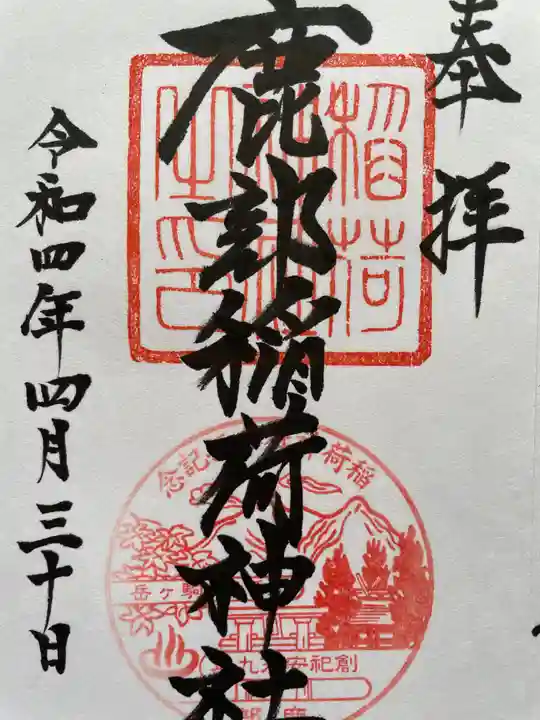 奉拝
鹿部稲荷神社
稲荷
之印
稲荷
記念
駒ヶ岳
創祀安
九
令和四年四月三十日